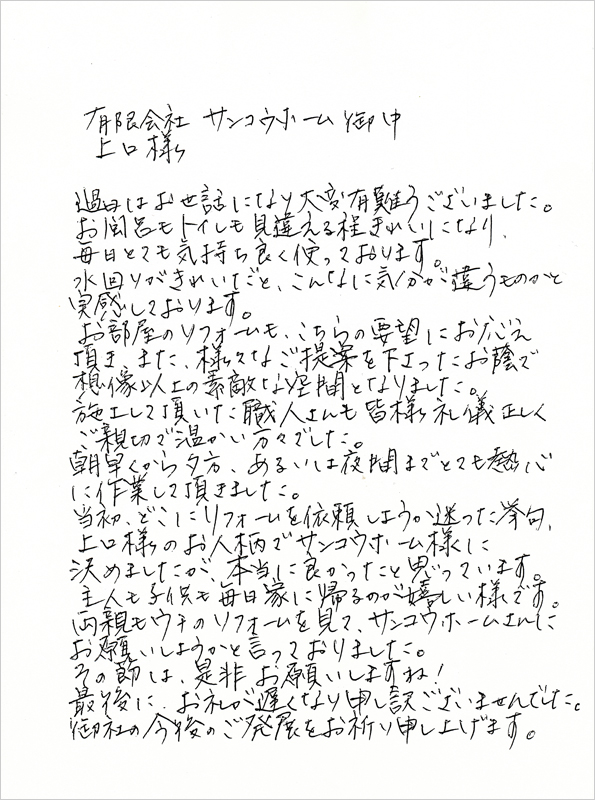 有限会社 サンコウホーム 御中
上口様
過日はお世話になり大変有難うございました。
お風呂もトイレも見違える程きれいになり、
毎日とても気持ち良く使っております。
水回りがきれいだと、こんなに気分が違うものかと
実感しております。
お部屋のリフォームも、こちらの要望にお応え
頂き、また、様々なご提案を下さったお蔭で
想像以上の素敵な空間となりました。
施工して頂いた職人さんも皆様礼儀正しく
ご親切で温かい方々でした。
朝早くから夕方、あるいは夜間までとても熱心
に作業して頂きました。
当初、どこにリフォームを依頼しようか迷った挙句、
上口様のお人柄でサンコウホーム様に
決めましたが、本当に良かったと思っています。
主人も子供も毎日家に帰るのが嬉しい様です。
両親もウチのリフォームを見て、サンコウホームさんに
お願いしようかと言っておりました。
その節は、是非お願いしますね!
最後に、お礼が遅くなり申し訳ございませんでした。
御社の今後のご発展をお祈り申し上げます。